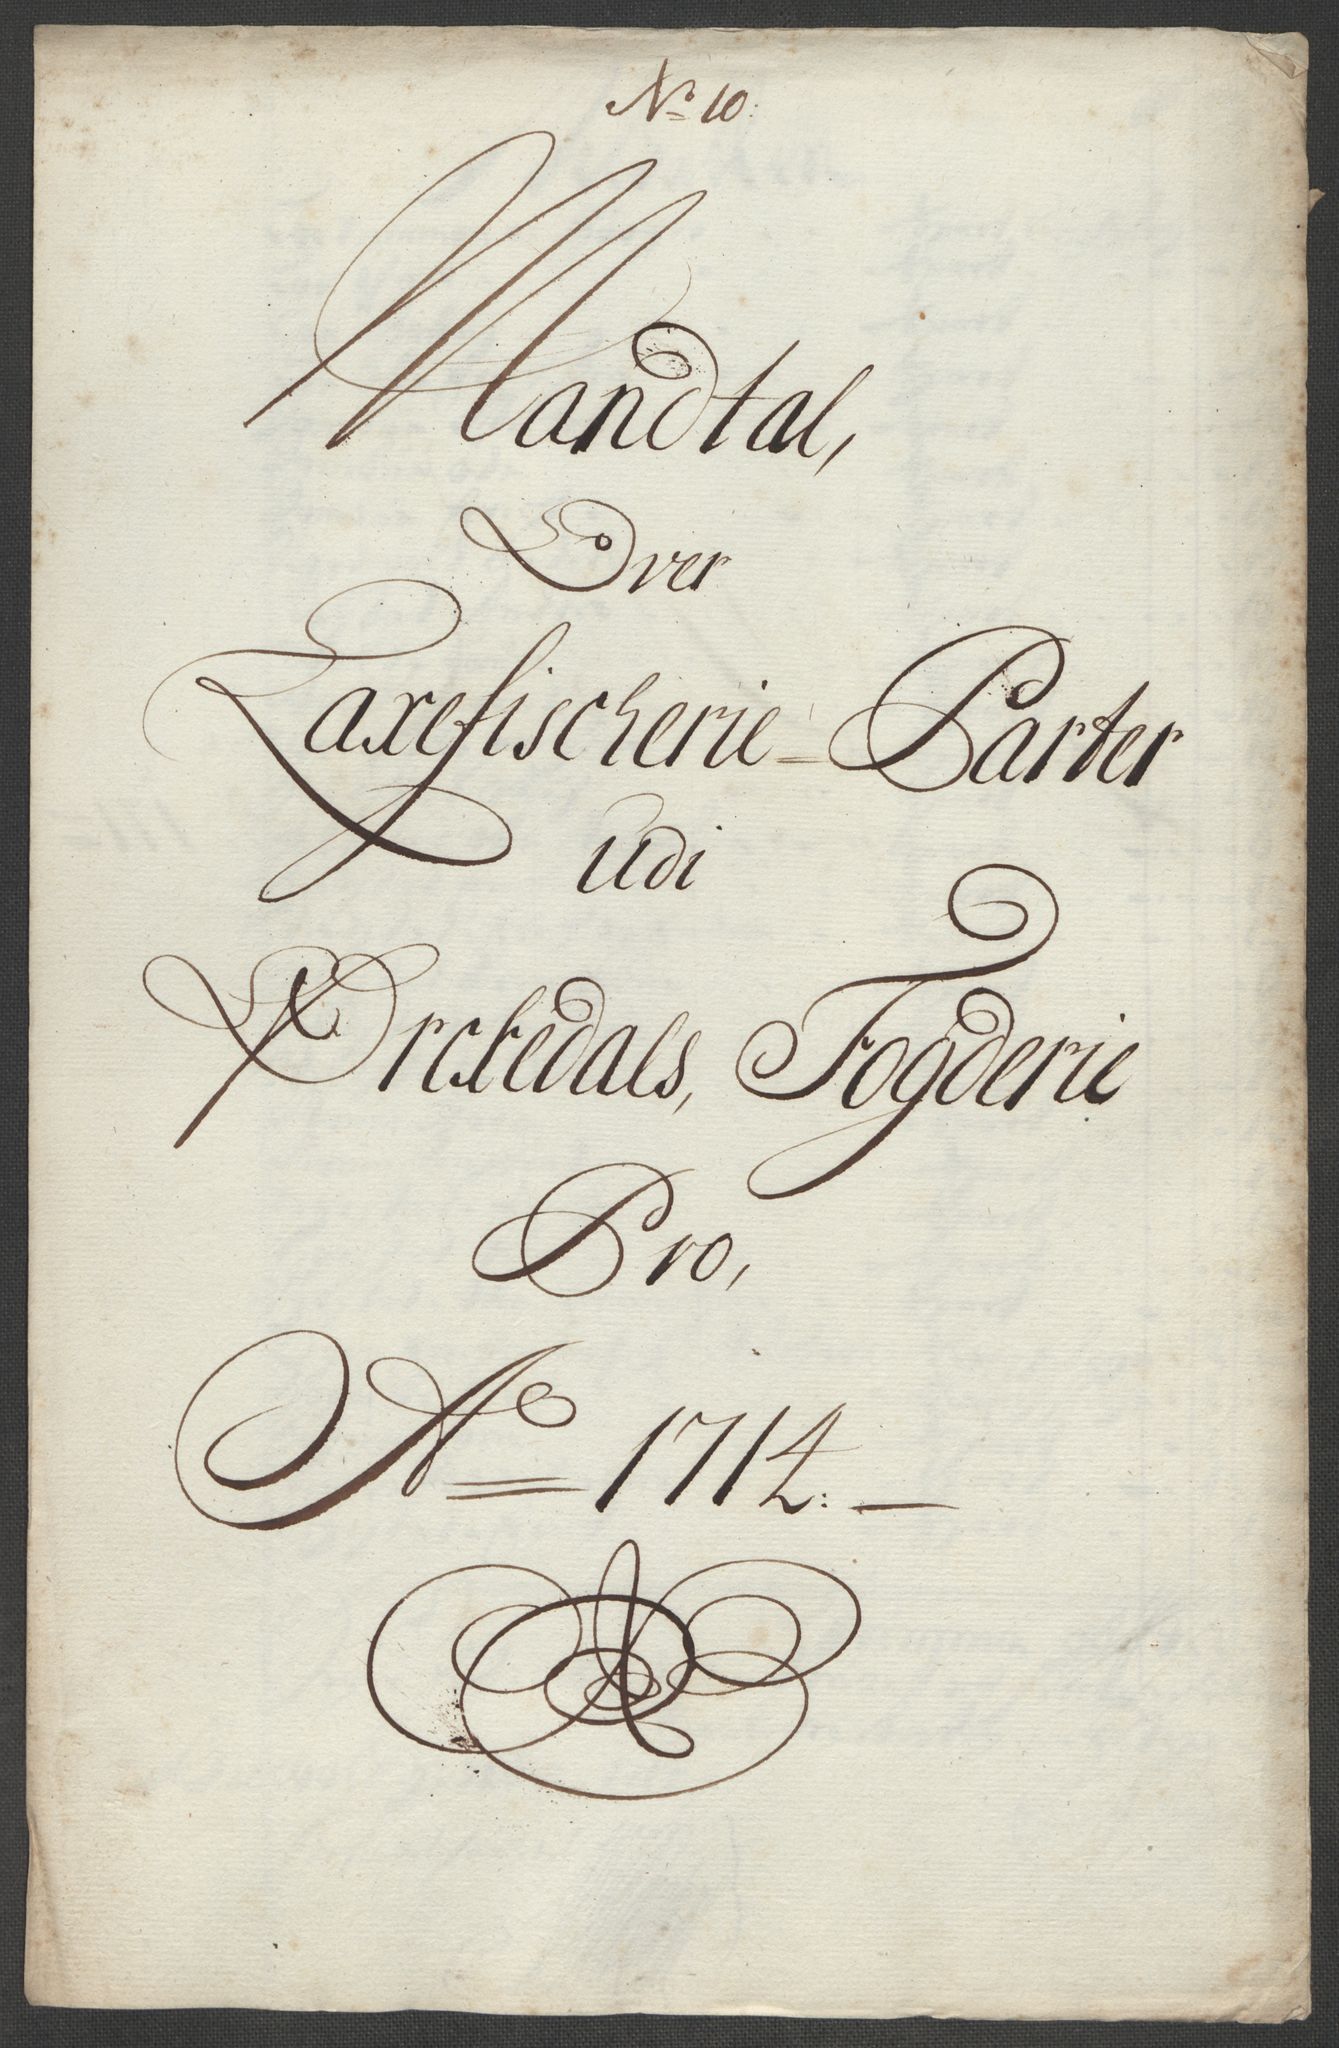 No 10:
Mandtal,
Over
Laxefischerie=Parter
Udi
Orckedals, Fogderie
Pro,
Ao 1714:—